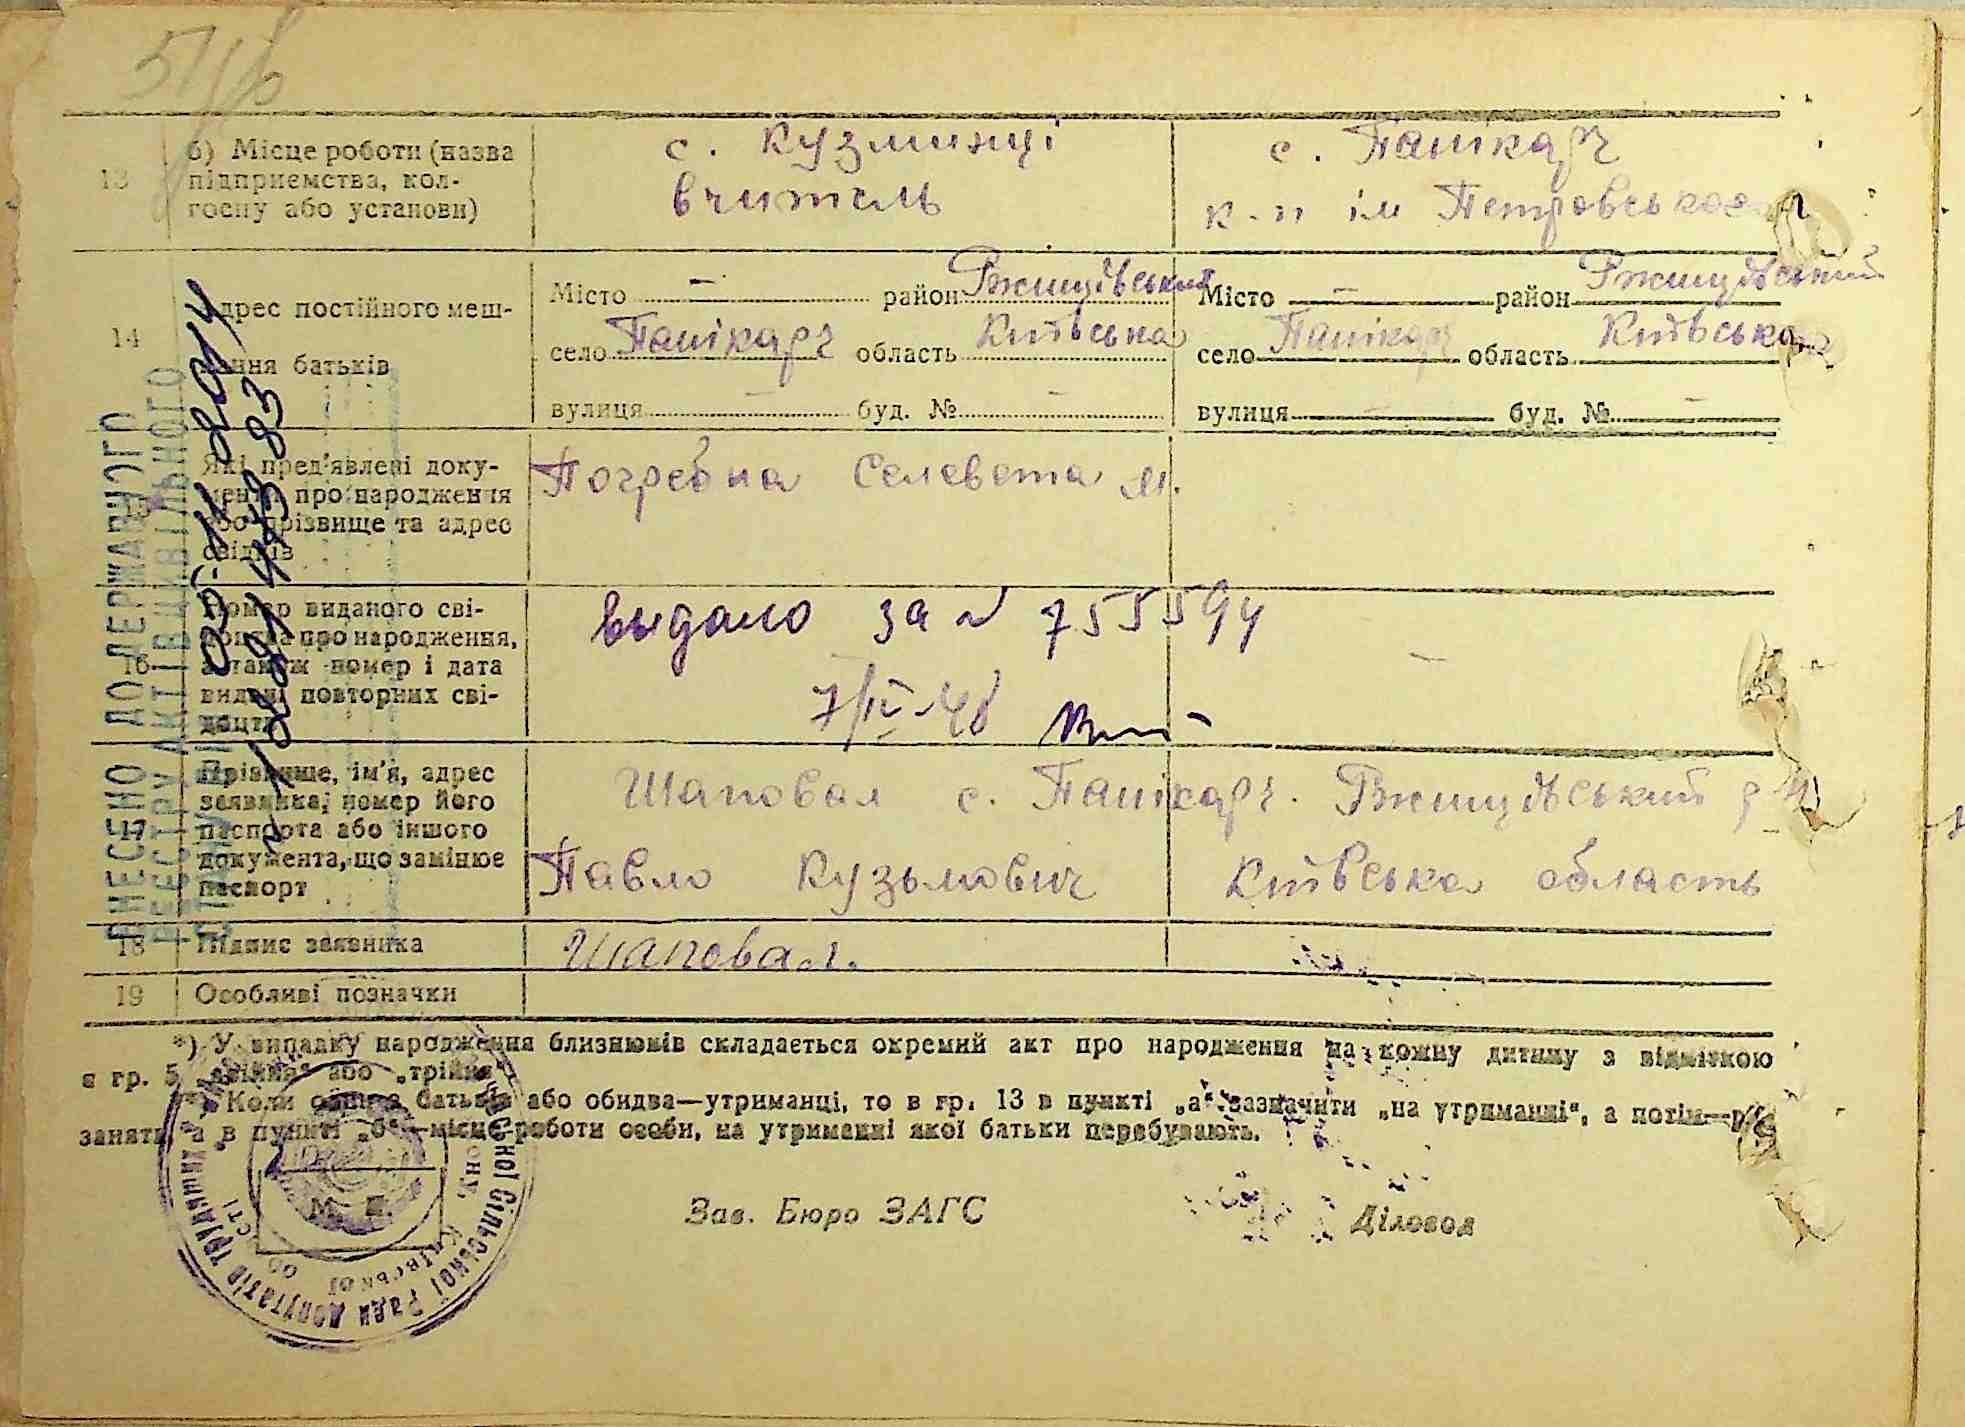 13
б) Місце роботи (назва
підприємства, кол-
госпу або установи)
с. Кузминці
вчитель
с. Пашкарч
к-п ім Петровського
14
Адрес постійного меш-
кання батьків
Місто — район Ржищівський
село Панікарч область Київська
вулиця — буд. № —
Місто — район Ржищівський
село Панікарч область Київська
вулиця — буд. № —
15
Які пред'явлені доку-
менти про народження
або прізвище та адрес
свідків
Погребна Селевета М.
16
Номер виданого сві-
доцтва про народження,
а також номер і дата
видачі повторних сві-
доцтв
выдано за № 755594
7/IV-48
17
Прізвище, ім'я, адрес
заявника, номер його
паспорта або іншого
документа, що замінює
паспорт
Шаповал с. Панікарч. Ржищівський р-н
Павло Кузьмович Київська область
18
Підпис заявника
Шаповал.
19
Особливі позначки
*) У випадку народження близнюків складається окремий акт про народження на кожну дитину з відміткою
в гр. 5 „двійня" або „трійня".
Коли один з батьків або обидва—утриманці, то в гр. 13 в пункті „а" зазначити „на утриманні", а потім—рід
занять, а в пункті „б"—місце роботи особи, на утриманні якої батьки перебувають.
М. П.
Зав. Бюро ЗАГС
Діловод
ВНЕСЕНО ДО ДЕРЖАВНОГО
РЕЄСТРУ АКТІВ ЦИВІЛЬНОГО
сільської Ради депутатів трудящих
Київської області